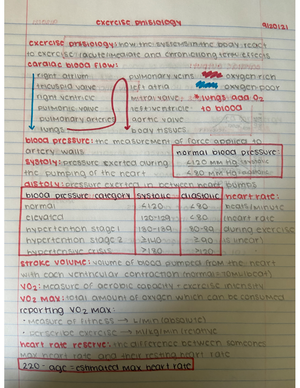 exercise phisiology
9/20/21
exercise phisiology: how the systems in the body react
to exercise (acute/immediate and chronic/long term effects
cardiac blood flow:
right atrium
tricuspid valve
right ventricle
pulmonic valve
pulmonary arteries
lungs
pulmonary veins
left atria
mitral valve
left ventricle
aortic valve
body tissues
oxygen rich
oxygen poor
*lungs add O2
to blood
blood pressure: the measurement of force applied to
artery walls
systoly: pressure exerted during
the pumping of the heart
normal blood pressure:
<120 mm Hg systolic
<80 mm Hg diastolic
distoly: pressure exerted in between heart pumps
blood pressure category systolic diastolic
normal <120 <80
elevated 120-129 <80
hypertension stage 1 130-139 80-89
hypertension stage 2 >140 >90
hypertensive crisis >180 >120
heart rate:
beats/minute
(heart rate
during exercise
is linear)
stroke volume: volume of blood pumped from the heart
with each ventricular contraction (normal=70ml/beat)
VO2: measure of aerobic capacity + exercise intensity
VO2 max: total amount of oxygen which can be consumed
reporting VO2 max:
• measure of fitness → L/min (absolute)
• describe exercise → ml/kg/min (relative)
heart rate reserve: the difference between someones
max heart rate and their resting heart rate
220 - age = estimated max heart rate